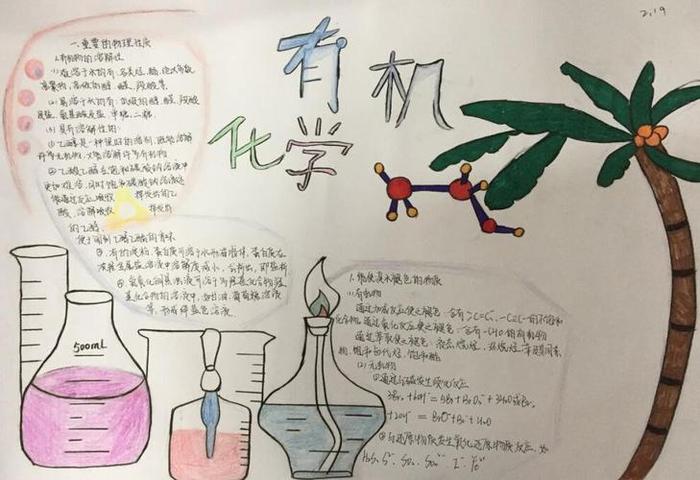 2.19
有机
化学
一.重要的物理性质
1.有机物的溶解性
(1)难溶于水的有:各类烃、酯、绝大多数
高聚物、高级的醇、醛、羧酸等
(2)易溶于水的有:低级的醇、醛、羧酸
盐、氨基酸及盐、单糖、二糖.
(3)具有溶解性的:
①乙醇是一种很好的溶剂,既能溶解
许多无机物,又能溶解许多有机物
②乙酸乙酯在饱和碳酸钠溶液中
更加难溶,同时饱和碳酸钠溶液还
能通过反应吸收挥发出的乙
酸,溶解吸收挥发出
的乙醇,
便于闻到乙酸乙酯的香味
③有的淀粉、蛋白质可溶于水形成胶体,蛋白质在
浓轻金属盐溶液中溶解度减小,会析出,即盐析
④氢氧化铜悬浊液可溶于多羟基化合物
溶液中,如甘油、葡萄糖溶液
等,形成绛蓝色溶液
500ml
1.能使溴水褪色的物质
(1)有机物
通过加成反应使之褪色:含有 C=C、-C≡C-的不饱和
化合物
通过氧化反应使之褪色:含有-CHO的有机物
通过萃取使之褪色:液态烷烃、环烷烃、苯及其同系
物、饱和卤代烃、饱和酯
(2)无机物
①通过与碱发生歧化反应
3Br₂+6OH⁻=5Br⁻+BrO₃⁻+3H₂O或Br₂
+2OH⁻=BrO⁻+Br⁻+H₂O
②与还原性物质发生氧化还原反应,如
H₂S、S²⁻、SO₂、SO₃²⁻、I⁻、Fe²⁺